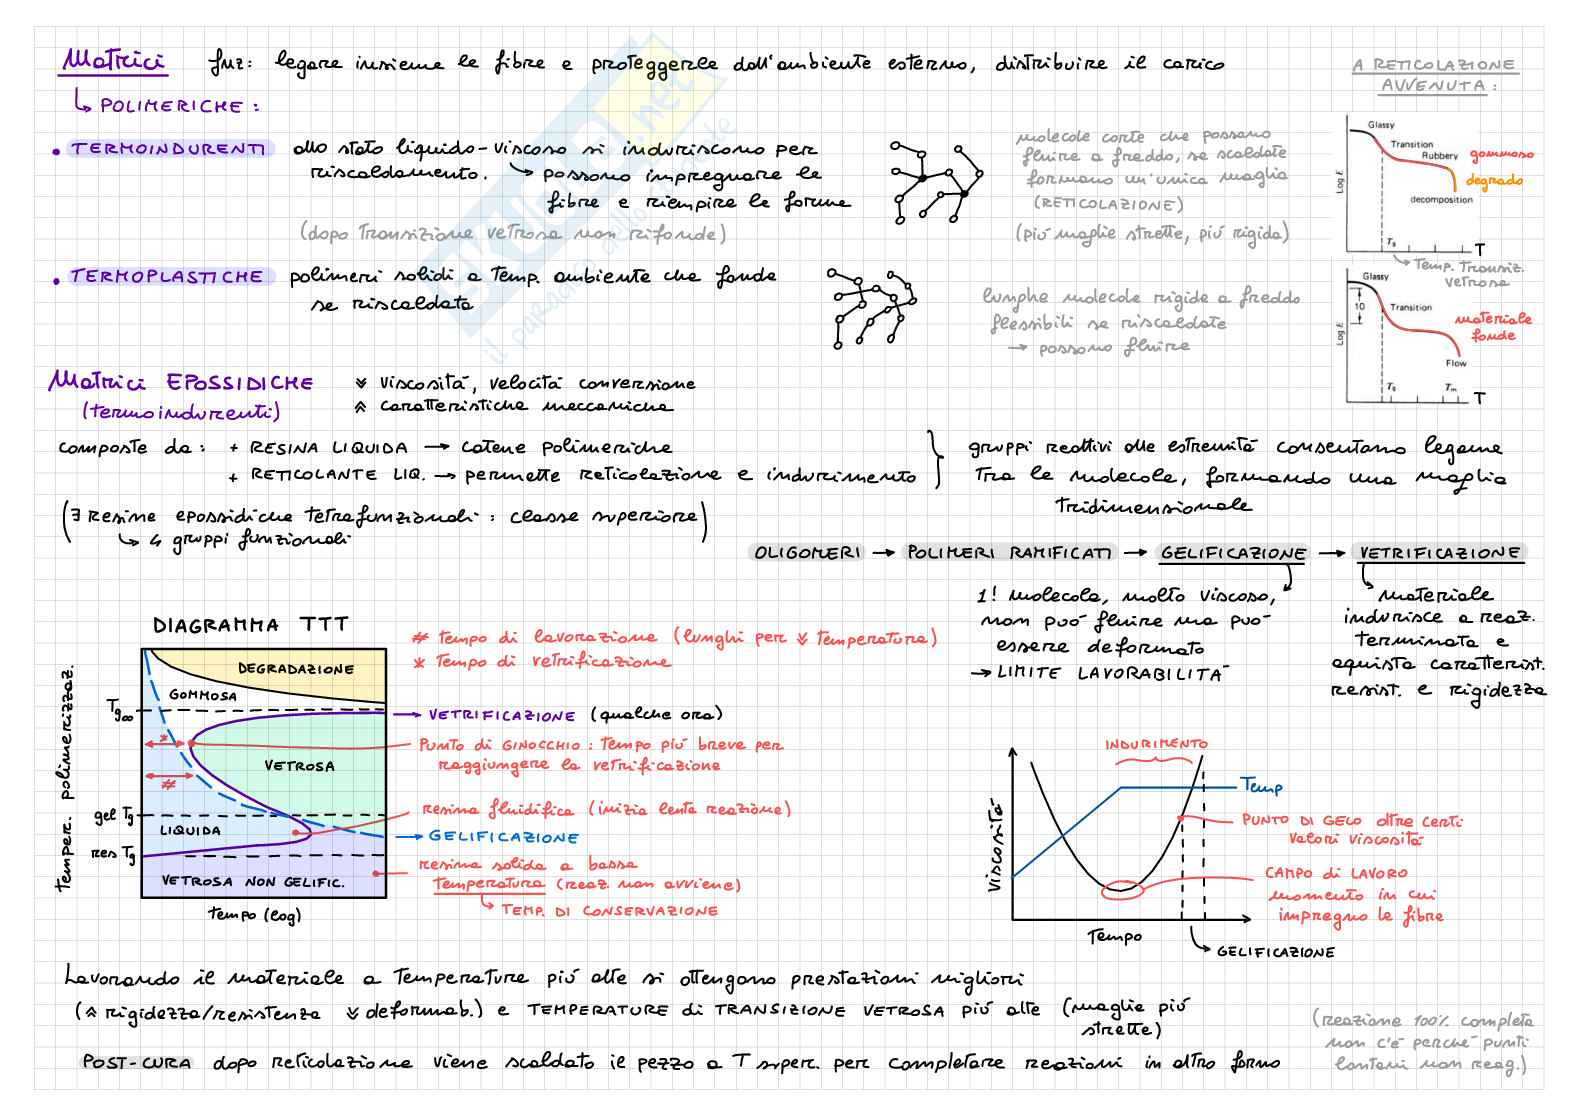 Matrici fnz: legare insieme le fibre e proteggerle dall'ambiente esterno, distribuire il carico
↳ POLIMERICHE :
• TERMOINDURENTI allo stato liquido-viscoso si induriscono per
riscaldamento. ↳ possono impregnare le
fibre e riempire le forme
(dopo transizione vetrosa non rifonde)
molecole corte che possono
fluire a freddo, se scaldate
formano un'unica maglia
(RETICOLAZIONE)
(più maglie strette, più rigida)
A RETICOLAZIONE
AVVENUTA :
Glassy
Transition
Rubbery gommoso
degrado
decomposition
Log E
Tg T
↳ Temp. Transiz.
vetrosa
• TERMOPLASTICHE polimeri solidi a Temp. ambiente che fonde
se riscaldata
lunghe molecole rigide a freddo
flessibili se riscaldate
→ possono fluire
Glassy
10
Transition
materiale
fonde
Flow
Log E
Tg Tm T
Matrici EPOSSIDICHE
(termoindurenti)
viscosità, velocità conversione
caratteristiche meccaniche
composte da: + RESINA LIQUIDA → catene polimeriche
+ RETICOLANTE LIQ. → permette reticolazione e indurimento
gruppi reattivi alle estremità consentano legame
tra le molecole, formando una maglia
tridimensionale
(∃ resine epossidiche tetrafunzionali : classe superiore)
↳ 4 gruppi funzionali
OLIGOMERI → POLIMERI RAMIFICATI → GELIFICAZIONE → VETRIFICAZIONE
1! molecola, molto viscoso,
non può fluire ma può
essere deformato
→ LIMITE LAVORABILITÀ
materiale
indurisce a reaz.
terminata e
aquista caratterist.
resist. e rigidezza
DIAGRAMMA TTT
# tempo di lavorazione (lunghi per ↓ temperatura)
* tempo di vetrificazione
temper. polimerizzaz.
DEGRADAZIONE
GOMMOSA
Tg∞
→ VETRIFICAZIONE (qualche ora)
*
PUNTO di GINOCCHIO : tempo più breve per
raggiungere la vetrificazione
VETROSA
#
resina fluidifica (inizia lenta reazione)
gel Tg
LIQUIDA
→ GELIFICAZIONE
res Tg
resina solida a bassa
temperatura (reaz. non avviene)
↳ TEMP. DI CONSERVAZIONE
VETROSA NON GELIFIC.
tempo (log)
INDURIMENTO
Temp
viscosità
PUNTO DI GELO oltre certi
valori viscosità
CAMPO di LAVORO
momento in cui
impregno le fibre
Tempo
GELIFICAZIONE
Lavorando il materiale a temperature più alte si ottengono prestazioni migliori
(↑ rigidezza/resistenza ↓ deformab.) e TEMPERATURE di TRANSIZIONE VETROSA più alte (maglie più
strette)
POST-CURA dopo reticolazione viene scaldato il pezzo a T super. per completare reazioni in altro forno
(reazione 100% completa
non c'è perché punti
lontani non reag.)